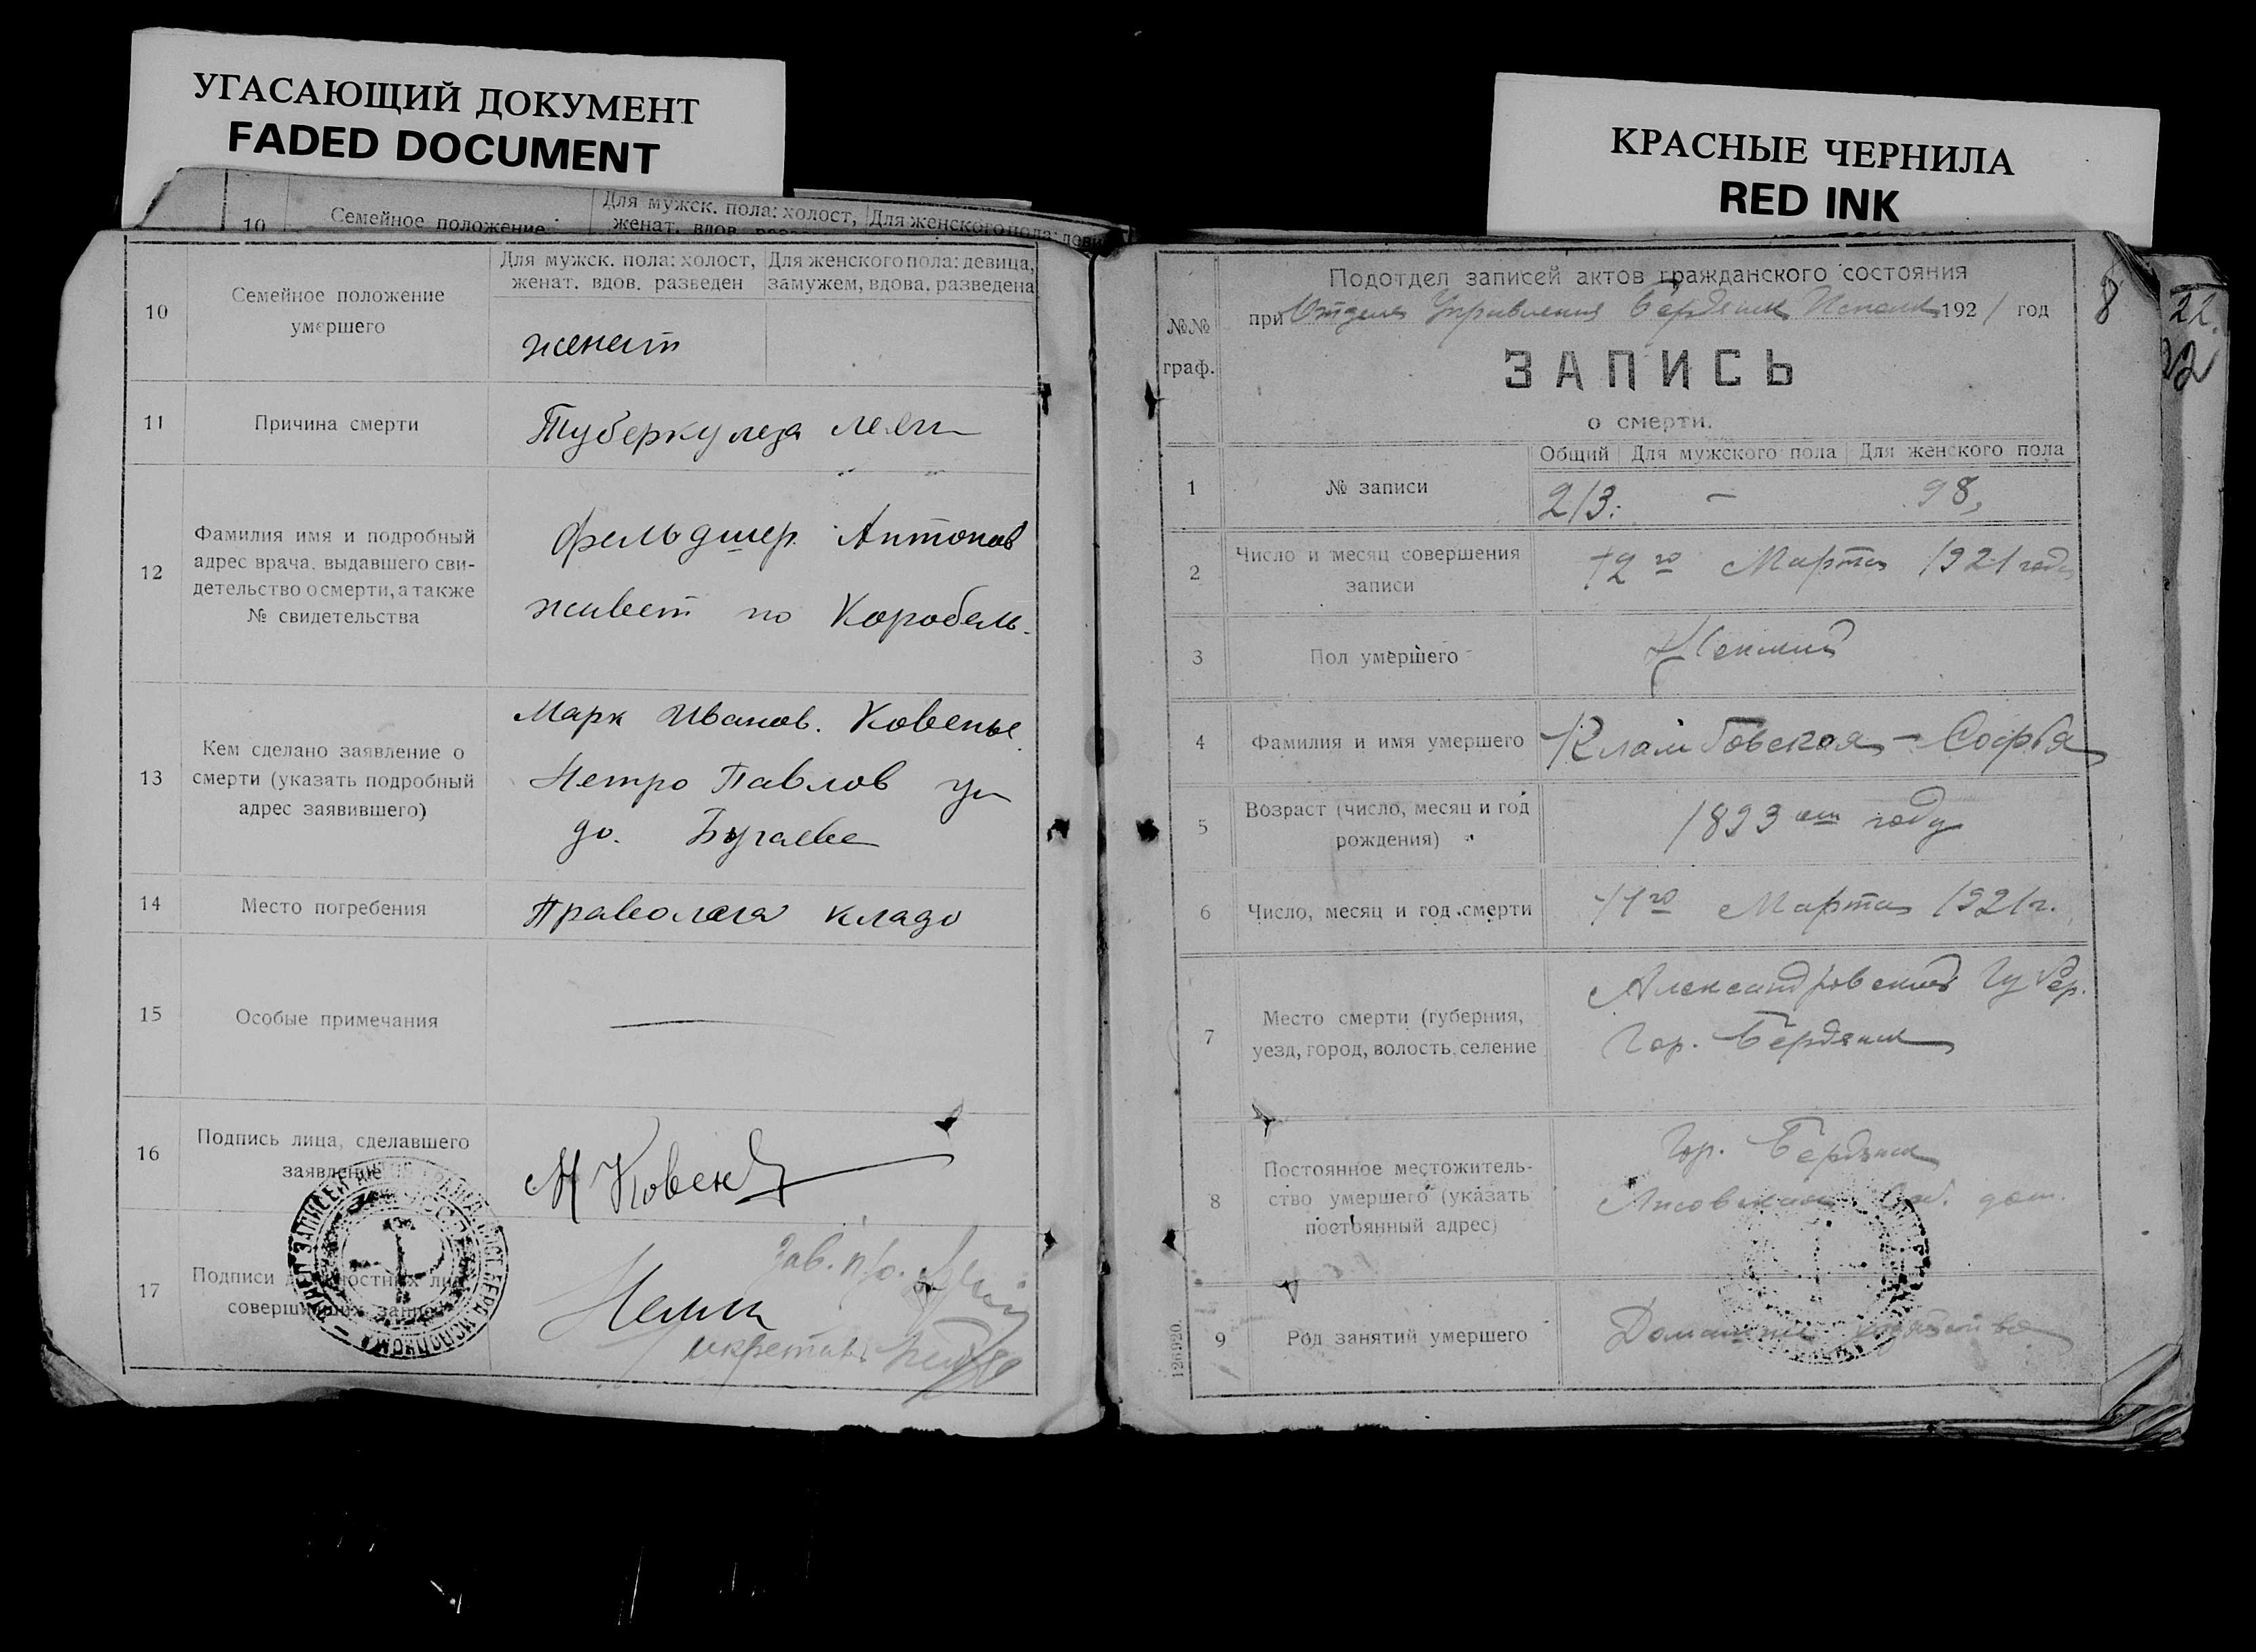 УГАСАЮЩИЙ ДОКУМЕНТ
FADED DOCUMENT
10 Семейное положение
Для мужск. пола: холост,
женат. вдов.
Для женского пола:
10
Семейное положение
умершего
Для мужск. пола: холост,
женат. вдов. разведен
Для женского пола: девица,
замужем, вдова, разведена
женат
11
Причина смерти
Туберкулеза
12
Фамилия имя и подробный
адрес врача, выдавшего сви-
детельство о смерти, а также
№ свидетельства
фельдшер Антонов
живет по Коробель.
13
Кем сделано заявление о
смерти (указать подробный
адрес заявившего)
Марк Иванов.
Петро Павлов ул
до.
14
Место погребения
кладо
15
Особые примечания
16
Подпись лица, сделавшего
заявление
М Ковен
17
Подписи должностных лиц
совершивших запись
Зав. п/о.
КРАСНЫЕ ЧЕРНИЛА
RED INK
8
22.
22
№№
граф.
Подотдел записей актов гражданского состояния
при Отделе Управления Бердянск 1921 год
ЗАПИСЬ
о смерти.
Общий Для мужского пола Для женского пола
1
№ записи
213. — 98,
2
Число и месяц совершения
записи
12го Марта 1921 года
3
Пол умершего
Женский
4
Фамилия и имя умершего
София
5
Возраст (число, месяц и год
рождения)
1893 году
6
Число, месяц и год смерти
11го Марта 1921 г.
7
Место смерти (губерния,
уезд, город, волость, селение
Александровский Губер.
Гор. Бердянск
8
Постоянное местожитель-
ство умершего (указать
постоянный адрес)
Гор. Бердянск
дом.
9
Род занятий умершего
Домашнее хозяйство
126920